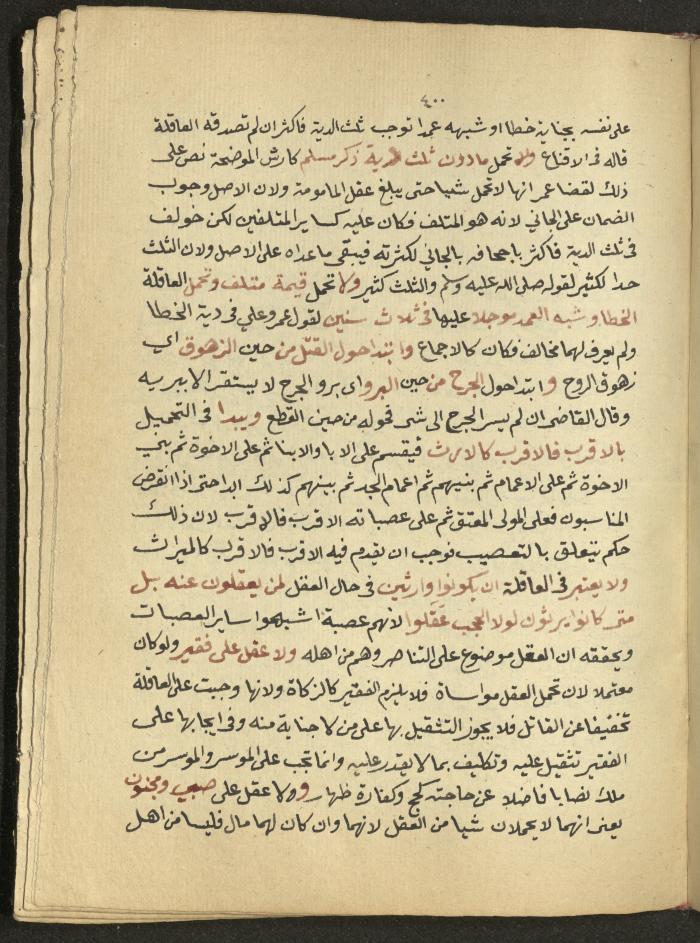 ٤٠٠
على نفسه بجناية خطا او شبهه عمدا توجب ثلث الدية فاكثر ان لم تصدقه العاقلة
قاله فى الاقناع ولا تحمل مادون ثلث دية ذكر مسلم كارش الموضحة نص على
ذلك لقضا عمر انها لا تحمل شيا حتى يبلغ عقل المامومة ولان الاصل وجوب
الضمان على الجاني لانه هو المتلف فكان عليه كساير المتلفين لكن خولف
فى ثلث الدية فاكثر باجحافه بالجاني لكثرته فيبقى ما عداه على الاصل ولان الثلث
حدا لكثير لقوله صلى الله عليه وسلم والثلث كثير ولا تحمل قيمة متلف وتحمل العاقلة
الخطا وشبه العمد موجلا عليها فى ثلاث سنين لقول عمر وعلي فى دية الخطا
ولم يعرف لهما مخالف فكان كالاجماع وابتدا حول القتل من حين الزهوق اي
زهوق الروح وابتدا حول الجرح من حين البرو اى برو الجرح لا يستقر الا ببريه
وقال القاضى ان لم يسر الجرح الى شى فحوله من حين القطع ويبدا فى التحميل
بالاقرب فالاقرب كالارث فيقسم على الابا والابنا ثم على الاخوة ثم بني
الاخوة ثم على الاعمام ثم بنيهم ثم اعمام الجد ثم بينهم كذلك ابدا حتى اذا انقرض
المناسبون فعلى المولى المعتق ثم على عصباته الاقرب فالاقرب لان ذلك
حكم يتعلق بالتعصيب فوجب ان يقدم فيه الاقرب فالاقرب كالميراث
ولا يعتبر فى العاقلة ان يكونوا وارثين فى حال العقل لمن يعقلون عنه بل
متى كانوا يرثون لولا الحجب عقلوا لانهم عصبة اشبهوا ساير العصبات
ويحققه ان العقل موضوع على التناصر وهم من اهله ولا عقل على فقير ولو كان
معتملا لان تحمل العقل مواساة فلا يلزم الفقير كالزكاة ولانها وجبت على العاقلة
تخفيفا عن القاتل فلا يجوز التثقيل بها على من لا جناية منه وفى ايجابها على
الفقير تثقيل عليه وتكليف بما لا يقدر عليه وانما تجب على الموسر والموسر من
ملك نصابا فاضلا عن حاجته كحج وكفارة ظهار ولا عقل على صبى ومجنون
يعنى انهما لا يحملان شيا من العقل لانهما وان كان لهما مال فليسا من اهل